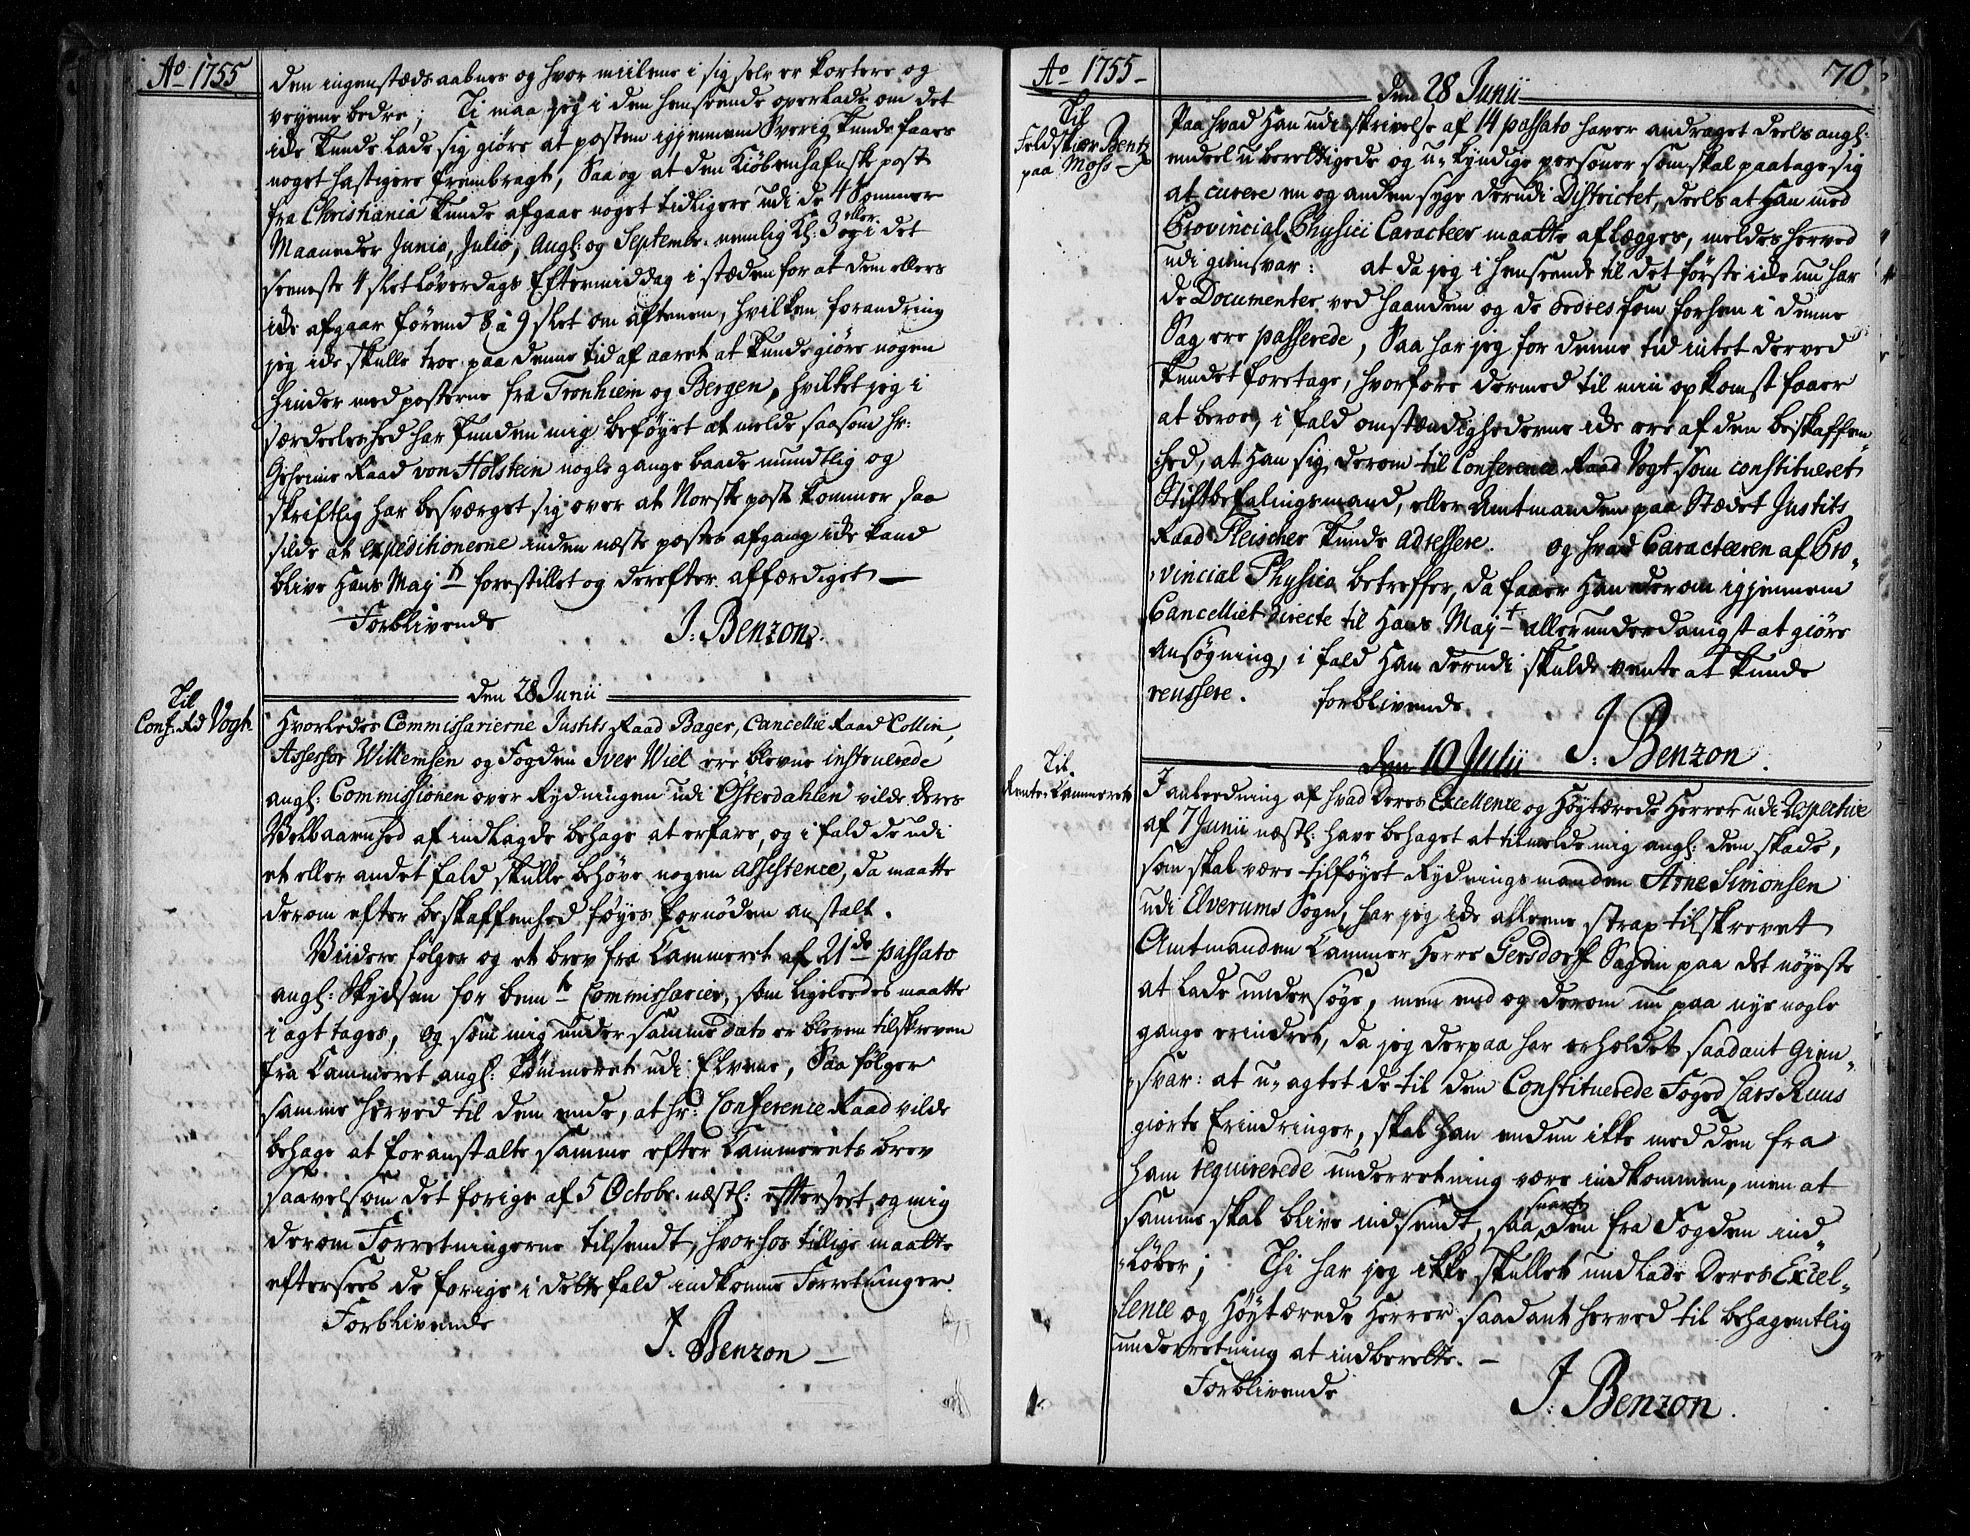 Ao 1755
den ingenstæds aabnes og hvor miilene i sig selv er kortere og
veyene bedre; Ti maa jeg i den henseende overlade om det
icke kunde lade sig giøre at posten igjennem Sverig kunde faaes
noget hastigere frembragt, Saa og at den Kiøbenhafnske post
fra Christiania kunde afgaae noget tidligere udi de 4 Sommer
Maaneder Junio, Julio, Aug: og Septembr. nemlig Kl: 3 eller og i det
seeneste 4 slet Løverdags Eftermiddag i stæden for at den ellers
icke afgaar førend 8 à 9 slet om aftenen, hvilken forandring
jeg icke skulle troe paa denne tid af aaret at kunde giøre nogen
hinder med posterne fra Tronhiem og Bergen, hvilket jeg i
særdeeleshed har funden mig beføyet at melde saasom Hr:
Geheime Raad von Holstein nogle gange baade mundtlig og
skriftlig har besværget sig over at Norske post kommer saa
silde at expeditionerne inden næste postes afgang icke kand
blive Hans Mayt forestillet og derefter affærdiget —
Forblivende
J: Benzon.
den 28 Junii
Til
Conf: Rd Vogt
Hvorledes Commissarierne Justits Raad Bager, Cancellie Raad Collin,
Assessor Willemsen og Fogden Iver Wiel ere blevne instruerede
angl: Commissionen over Rydningen udi Østerdahlen vilde Deres
Velbaarenhed af indlagde behage at erfare, og i fald de udi
et eller andet fald skulle behøve nogen assistence, da maatte
derom efter beskaffenhed føyes fornøden anstalt.
Viidere følger og et brev fra Cammeret af 21de passato
angl: Skydsen for bemte Commissarier, som ligeleedes maatte
i agt tages, og som mig under samme dato er bleven tilskreven
fra Cammeret angl: Tømmeret udi Elvene, Saa følger
samme herved til den ende, at hr: Conference Raad vilde
behage at foranstalte samme efter Cammerets brev
saavelsom det forige af 5 Octobr. næstl: efterseet, og mig
derom Forretningerne tilsendt, hvorhos tillige maatte
efterseес de forige i dette fald indkomne Forretninger.
Forblivende
J. Benzon —
Ao 1755 —
70.
den 28 Junii
Til
Feldskiær Bentz
paa Moss
Paa hvad Han udi skrivelse af 14 passato haver andraget deels angl:
endeel uberettigede og u-kyndige personer som skal paatage sig
at curere en og anden syge derudi Districtet, deels at Han med
Provincial Physici Caracteer maatte aflægges, meldes herved
udi giensvar: at da jeg i henseende til det første icke nu har
de Documenter ved haanden og de ordres som forhen i denne
Sag ere passerede, Saa har jeg for denne tid intet derved
kundet foretage, hvorfore dermed til min opkomst faaer
at beroe, i fald omstændighederne icke ere af den beskaffen-
hed, at Han sig derom til Conference Raad Vogt som constitueret
Stiftbefalingsmand, eller Amtmanden paa Stædet Justits
Raad Fleischer kunde adressere. og hvad Caracteeren af Pro-
vincial Physico betreffer, da faaer Han derom igjennem
Cancelliet directe til Hans Mayt allerunderdanigst at giøre
ansøgning, i fald Han derudi skulde vente at kunde
reussere. forblivende
J. Benzon.
den 10 Julii
Til
Rente-Cammeret
I anledning af hvad Deres Excellence og Høytærede Herrer udi Respective
af 7 Junii næstl: have behaget at tilmelde mig angl: den skade,
som skal være tilføyet Rydningsmanden Arne Simonsen
udi Elverums Sogn, har jeg icke alleene strax tilskrevet
Amtmanden Cammer Herre Gersdorf Sagen paa det nøyeste
at lade undersøge, men end og derom nu paa nye nogle
gange erindret, da jeg derpaa har erholdet saadant Gien-
svar: at u-agtet de til den Constituerede Foged Lars Ruus
giorte Erindringer, skal han endnu ikke med den fra
ham requirerede underretning være indkommen, men at
samme skal blive indsendt, saa snart den fra Fogden ind-
løber; Thi har jeg ikke skullet undlade Deres Excel-
lence og Høytærede Herrer saadant herved til behagentlig
underretning at indberette. —
Forblivende
J. Benzon.